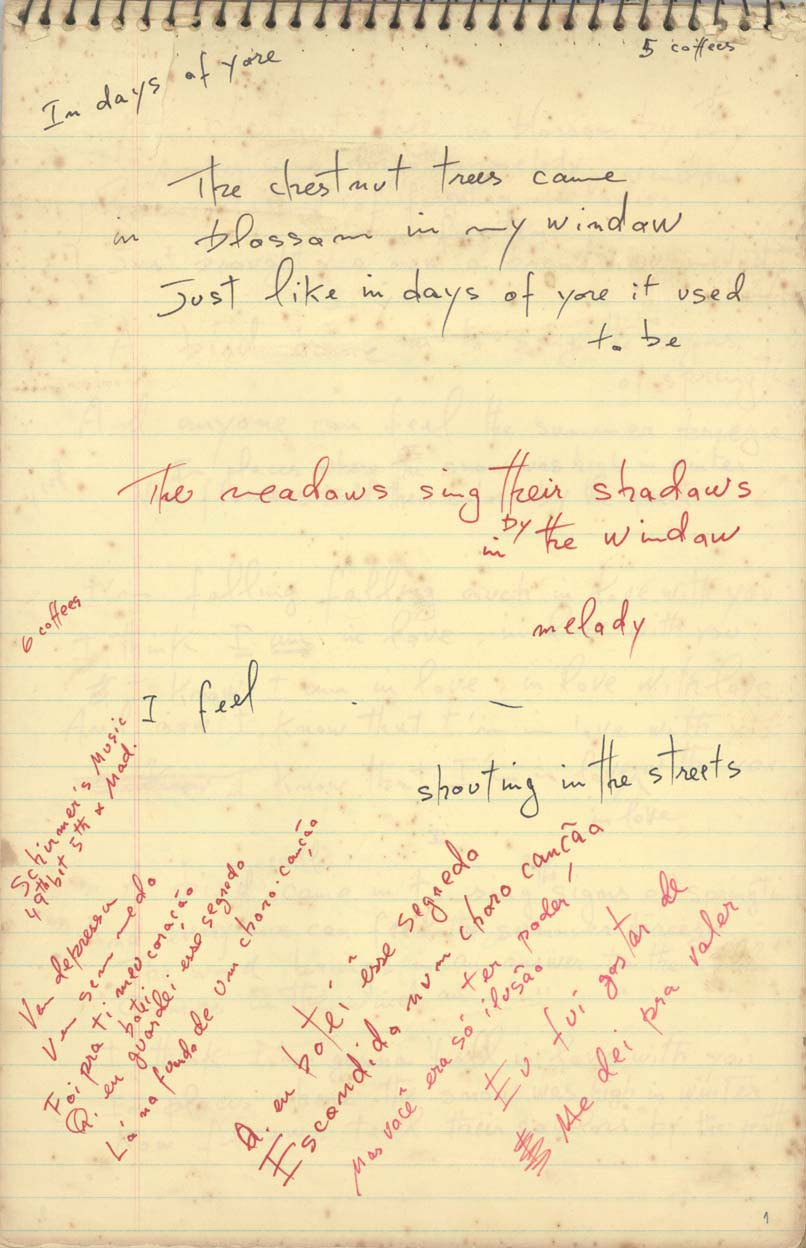 5 coffees
In days of yore
The chestnut trees came
in blossom in my window
Just like in days of yore it used
to be
The meadows sing their shadows
by
in the window
melody
6 coffees
I feel
shouting in the streets
Schirmer's Music
49th bet 5th & Mad.
Vem depressa
Vem sem medo
Foi pra ti meu coração
botei
Q. eu guardei esse segredo
Lá no fundo de um choro-canção
Q. eu botei esse segredo
Escondido num choro canção
ter poder
Mas você era só ilusão
Eu fui gostar de
Me dei pra valer
1